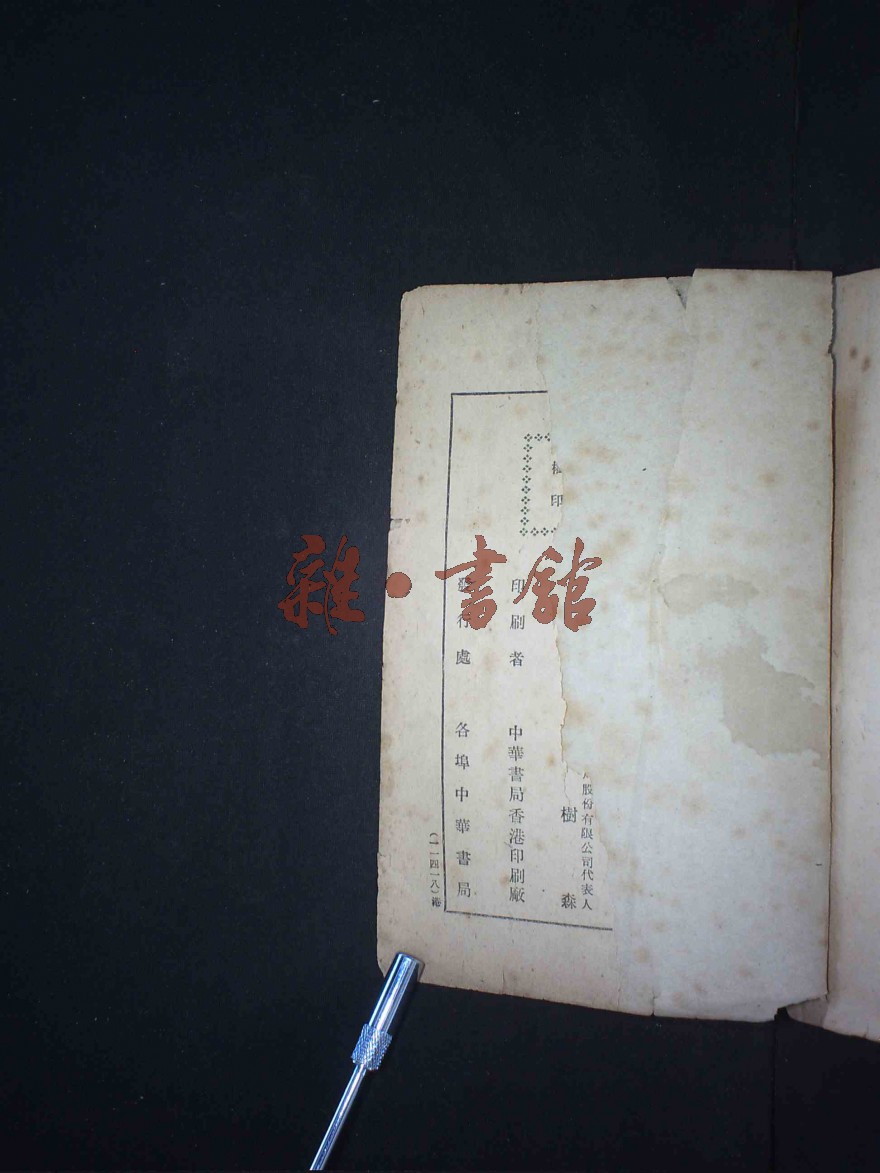 印
股份有限公司代表人
樹森
印刷者 中華書局香港印刷廠
發行處 各埠中華書局
(一一四一八)
雜·書館